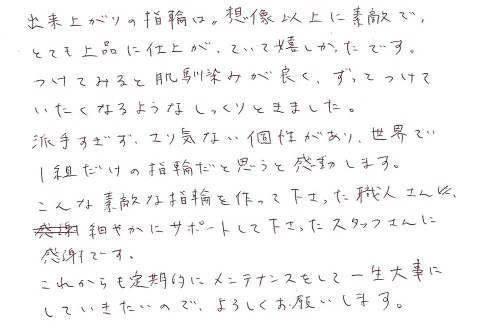 出来上がりの指輪は。想像以上に素敵で、
とても上品に仕上がっていて嬉しかったです。
つけてみると肌馴染みが良く、ずっとつけて
いたくなるようなしっくりときました。
派手すぎず、さり気ない個性があり、世界で
1組だけの指輪だと思うと感動します。
こんな素敵な指輪を作って下さった職人さんや、
細やかにサポートして下さったスタッフさんに
感謝です。
これからも定期的にメンテナンスをして一生大事に
していきたいので、よろしくお願いします。